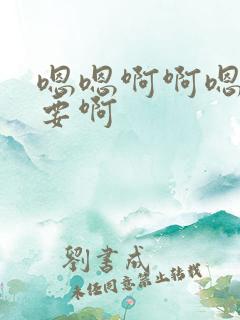 嗯嗯啊啊嗯
要啊
劉書成
未经同意禁止转载